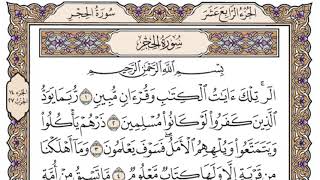 الجزء الرابع عشر
سورة الحجر
سورة الحجر
بِسْمِ ٱللَّهِ ٱلرَّحْمَٰنِ ٱلرَّحِيمِ
الٓرۚ تِلْكَ ءَايَٰتُ ٱلْكِتَٰبِ وَقُرْءَانٍ مُّبِينٍ ١ رُّبَمَا يَوَدُّ
ٱلَّذِينَ كَفَرُوا۟ لَوْ كَانُوا۟ مُسْلِمِينَ ٢ ذَرْهُمْ يَأْكُلُوا۟
وَيَتَمَتَّعُوا۟ وَيُلْهِهِمُ ٱلْأَمَلُۖ فَسَوْفَ يَعْلَمُونَ ٣ وَمَآ أَهْلَكْنَا
مِن قَرْيَةٍ إِلَّا وَلَهَا كِتَابٌ مَّعْلُومٌ ٤ مَّا تَسْبِقُ مِنْ أُمَّةٍ